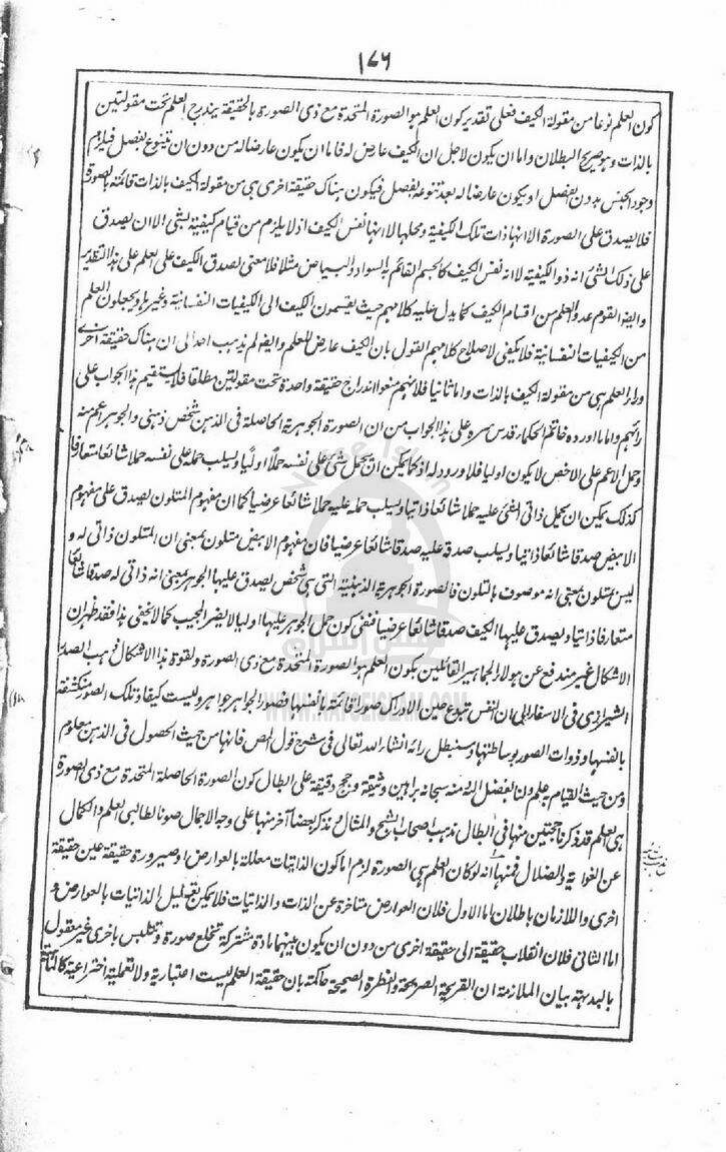 ١٧٦
كون العلم نوعا من مقولة الكيف فعلى تقدير كون العلم هو الصورة المتحدة مع ذى الصورة بالحقيقة يندرج العلم تحت مقولتين
بالذات وهو صريح البطلان واما ان يكون لاجل ان الكيف عارض له فاما ان يكون عارضا له من دون ان يتنوع بفصل فيلزم
وجود الجنس بدون الفصل او يكون عارضا له بعد تنوعه بفصل فيكون هناك حقيقة اخرى هى من مقولة الكيف بالذات قائمة بالصورة
فلا يصدق على الصورة الا انها ذات تلك الكيفية ومحلها لا انها نفس الكيف اذ لا يلزم من قيام كيفية بشئ الا ان يصدق
على ذلك الشئ انه ذو الكيفية لا انه نفس الكيف كالجسم القائم به السواد والبياض مثلا فلا معنى لصدق الكيف على العلم على هذا التقدير
وايضا القوم عدوا العلم من اقسام الكيف كما يدل عليه كلامهم حيث يقسمون الكيف الى الكيفيات النفسانية وغيرها ويجعلون العلم
من الكيفيات النفسانية فلا يكفى لاصلاح كلامهم القول بان الكيف عارض للعلم وايضا لم يذهب احد الى ان هناك حقيقة اخرى
وراء العلم هى من مقولة الكيف بالذات واما ثانيا فلانهم منعوا اندراج حقيقة واحدة تحت مقولتين مطلقا فلا يستقيم هذا الجواب على
رائهم واما ما اورده خاتم الحكماء قدس سره على هذا الجواب من ان الصورة الجوهرية الحاصلة فى الذهن شخص ذهنى والجوهر اعم منه
وحمل الاعم على الاخص لا يكون اوليا فلا ورود له اذ كما يمكن ان يحمل شئ على نفسه حملًا اوليًا ويسلب حمله على نفسه حملا شائعا متعارفا
كذلك يمكن ان يحمل ذاتى الشئ عليه حملا شائعا ذاتيا ويسلب حمله عليه حملا شائعا عرضيا كما ان مفهوم المتلون يصدق على مفهوم
الابيض صدقا شائعا ذاتيا ويسلب صدقه عليه صدقا شائعا عرضيا فان مفهوم الابيض متلون بمعنى ان المتلون ذاتى له و
ليس بمتلون بمعنى انه موصوف بالتلون فالصورة الجوهرية الذهنية التى هى شخص يصدق عليها الجوهر بمعنى انه ذاتى له صدقا شائعا
متعارفا ذاتيا ويصدق عليها الكيف صدقا شائعا عرضيا فنفى كون حمل الجوهر عليها اوليا لا يضر المجيب كما لا يخفى هذا فقد ظهر ان
الاشكال غير مندفع عن هولاء الجماهير القائلين بكون العلم هو الصورة المتحدة مع ذى الصورة ولقوة هذا الاشكال ذهب الصدر
الشيرازى فى الاسفار الى ان النفس تبوع حين الادراك صورا قائمة بانفسها فصور الجواهر جواهر وليست كيفا وتلك الصور منكشفة
بانفسها وذوات الصور بوساطتها وسنبطل رائه انشاء الله تعالى فى شرح قول المص فانها من حيث الحصول فى الذهن معلوم
ومن حيث القيام به علم ولنا بفضل الله منه سبحانه براهين وثيقة وحجج دقيقة على ابطال كون الصورة الحاصلة المتحدة مع ذى الصورة
هى العلم قد ذكرنا حجتين منها فى ابطال مذهب اصحاب الشبح والمثال ونذكر بعضا آخر منها على وجه الاجمال صونا لطالبى العلم والكمال
عن الغواية والضلال فمنها انه لو كان العلم هى الصورة لزم اما كون الذاتيات معللة بالعوارض او صيرورة حقيقة عين حقيقة
اخرى واللازمان باطلان اما الاول فلان العوارض متاخرة عن الذات والذاتيات فلا يمكن تعليل الذاتيات بالعوارض و
اما الثانى فلان انقلاب حقيقة الى حقيقة اخرى من دون ان يكون بينهما مادة مشتركة تنخلع صورة وتتلبس باخرى غير معقول
بالبديهة بيان الملازمة ان القريحة الصريحة والفطرة الصحيحة حاكمة بان حقيقة العلم ليست اعتبارية ولا تعملية اختراعية
WWW.NAFSEISLAM.COM